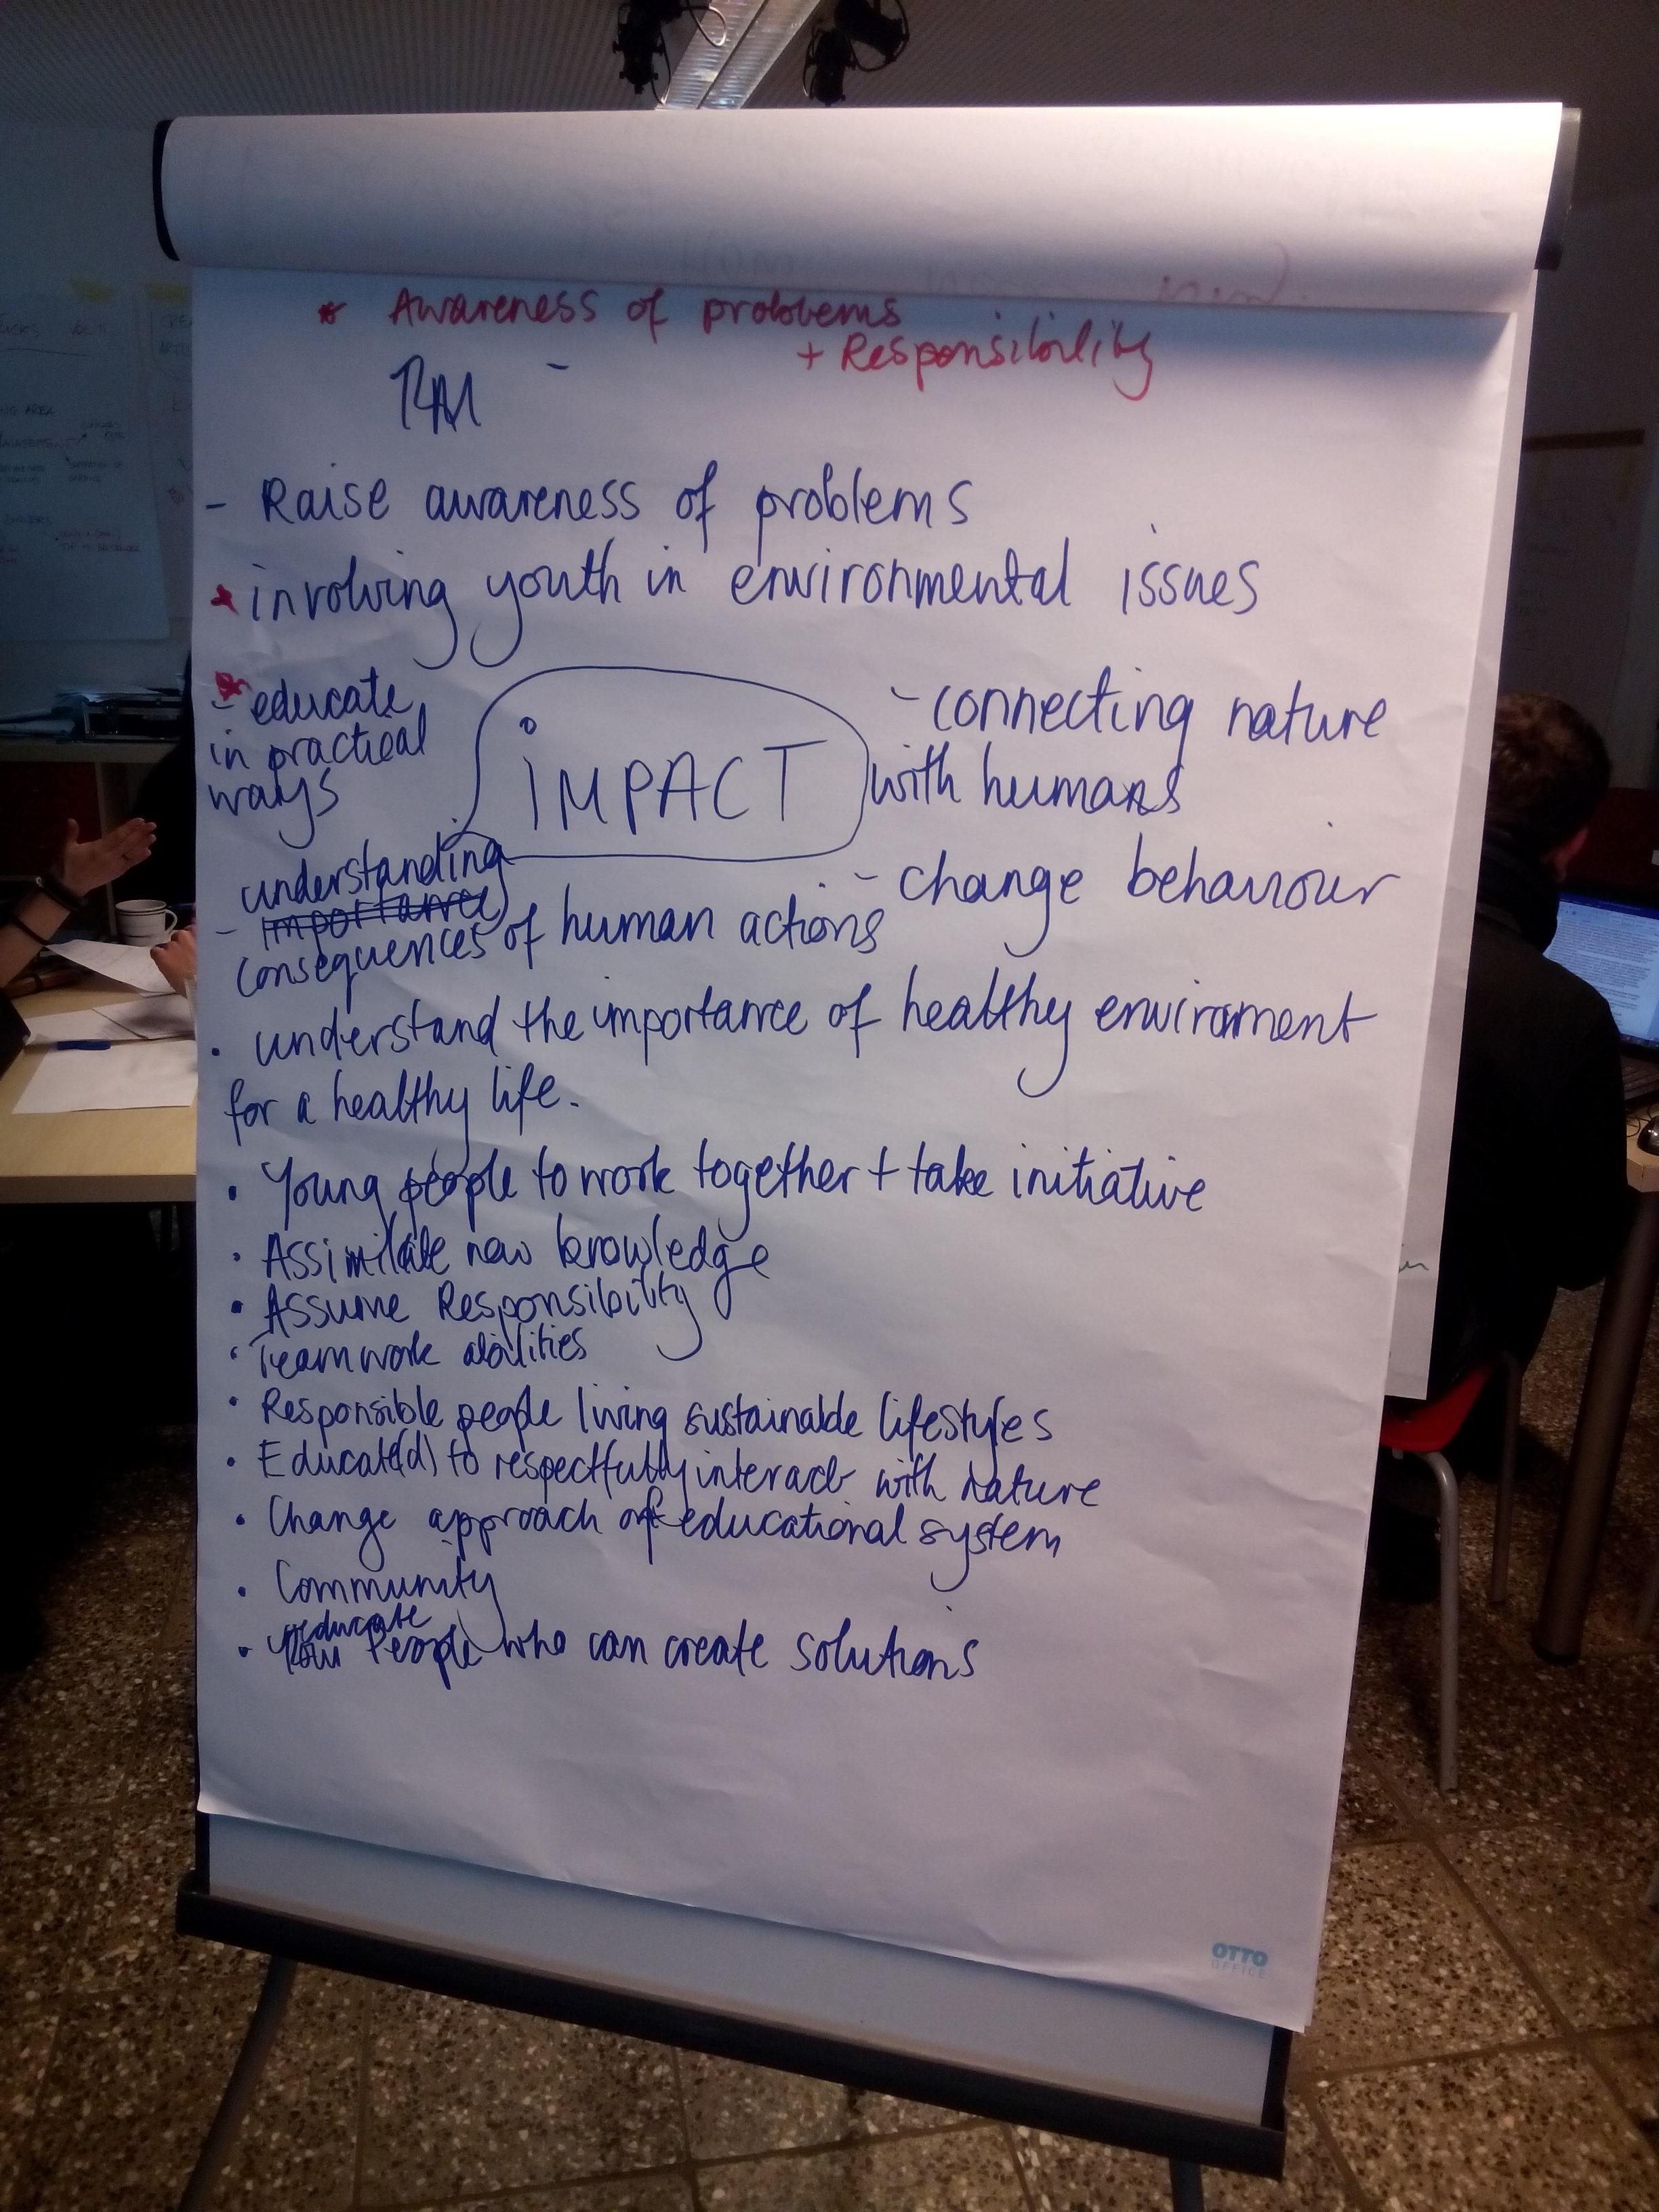 * Awareness of problems
+ Responsibility
- Raise awareness of problems
* involving youth in environmental issues
- educate
in practical
ways
iMPACT
- connecting nature
with humans
- change behaviour
understanding
- importance
consequences of human actions
• understand the importance of healthy environment
for a healthy life.
• Young people to work together + take initiative
• Assimilate new knowledge
• Assume Responsibility
• Teamwork abilities
• Responsible people living sustainable lifestyles
• Educate(d) to respectfully interact with nature
• Change approach of educational system
• Community
educate
• People who can create solutions
OTTO
OFFICE